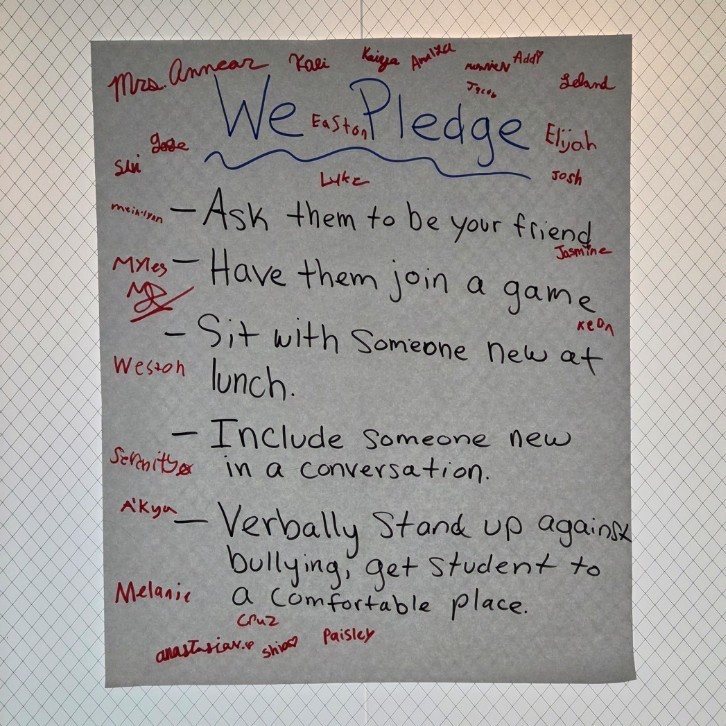 Mrs. Annear Kali Kaiya Analiza Addi
Jacob Leland
We Pledge
Easton Elijah
Jose
Sui
Luke Josh
- Ask them to be your friend
Jasmine
Myles - Have them join a game
Keon
- Sit with someone new at
Weston lunch.
- Include someone new
Serenity in a conversation.
A'Kya - Verbally Stand up against
bullying, get student to
Melanie a comfortable place.
Cruz
Paisley